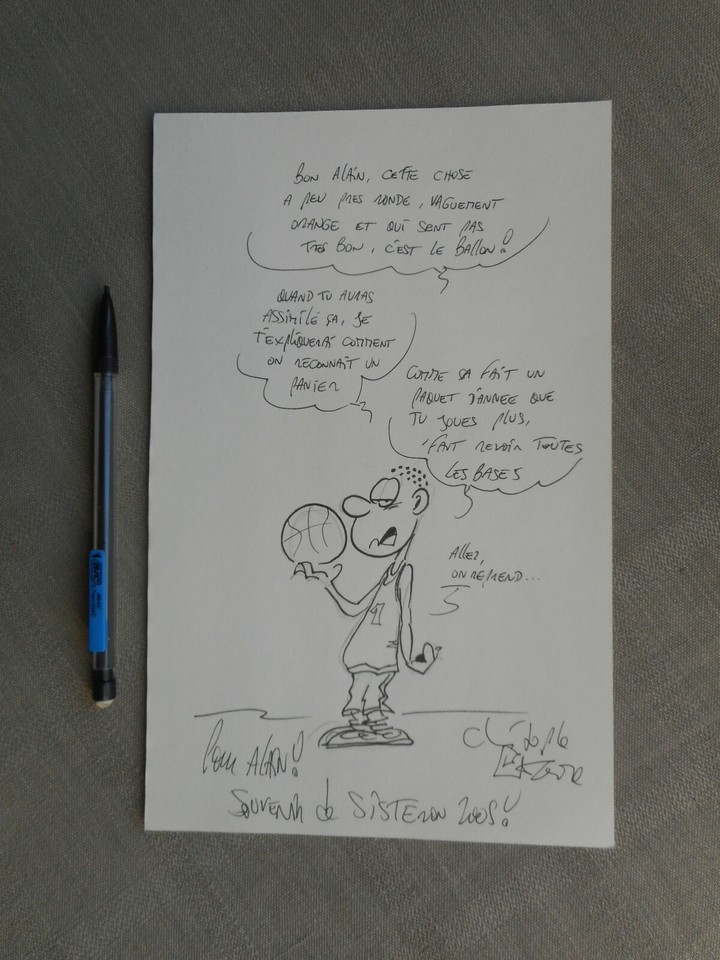 BON ALAIN, CETTE CHOSE
A PEU PRES RONDE, VAGUEMENT
ORANGE ET QUI SENT PAS
TRES BON, C'EST LE BALLON!
QUAND TU AURAS
ASSIMILÉ ÇA, JE
T'EXPLIQUERAI COMMENT
ON RECONNAIT UN
PANIER
COMME SA FAIT UN
PAQUET D'ANNEE QUE
TU JOUES PLUS,
FAUT REVOIR TOUTES
LES BASES
ALLEZ,
ON REPREND...
BIC
Pour ALAIN!
Christophe
SOUVENIR de SISTERON 2005!